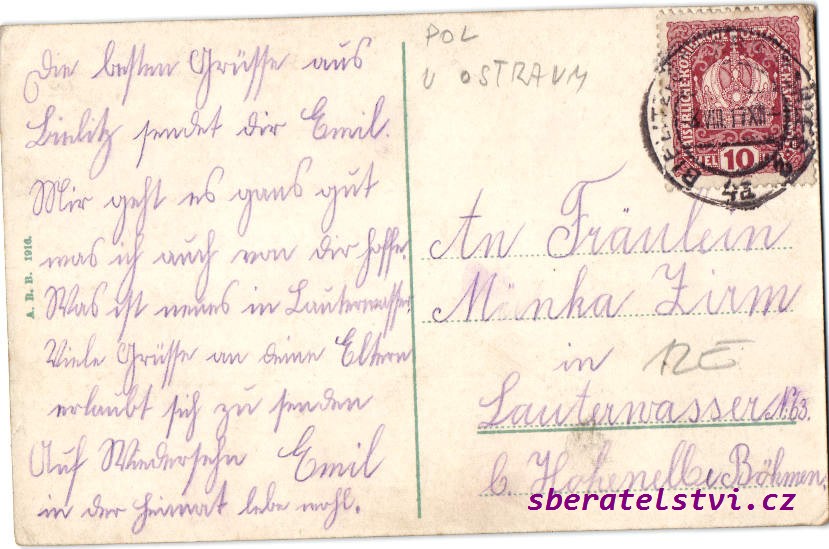 Die besten Grüsse aus
Bielitz sendet dir Emil.
Mir geht es gans gut
was ich auch von dir hoffe.
Was ist neues in Lauterwasser.
Viele Grüsse an deine Eltern
erlaubt sich zu senden
Auf Wiedersehn Emil
in der Heimat lebe wohl.
A. B. B. 1916.
POL
V OSTRAVY
10
BIELITZ
An Fräulein
Minka Zirm
in
Lauterwasser N. 63.
b Hohenelbe Böhmen.
sberatelstvi.cz